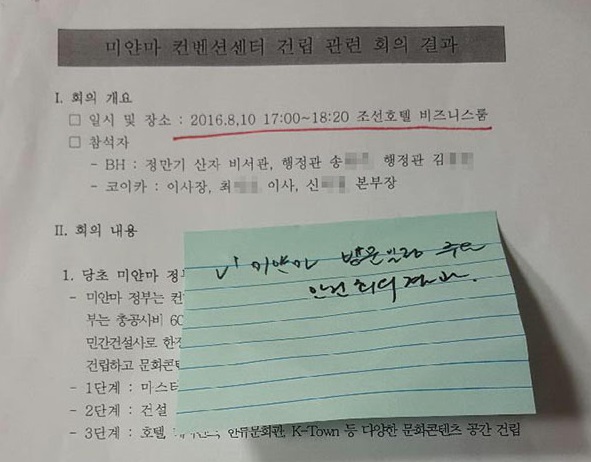 미얀마 컨벤션센터 건립 관련 회의 결과
I. 회의 개요
□ 일시 및 장소 : 2016.8.10 17:00~18:20 조선호텔 비즈니스룸
□ 참석자
- BH : 정만기 산자 비서관, 행정관 송 행정관 김
- 코이카 : 이사장, 최 이사, 신 본부장
II. 회의 내용
√ 미얀마 방문일정
1. 당초 미얀마 정
- 미얀마 정부는 컨
부는 총공사비 60
민간건설사로 한
건립하고 문화콘
- 1단계 : 미스터
- 2단계 : 건설
- 3단계 : 호텔, 한류문화관, K-Town 등 다양한 문화콘텐츠 공간 건립